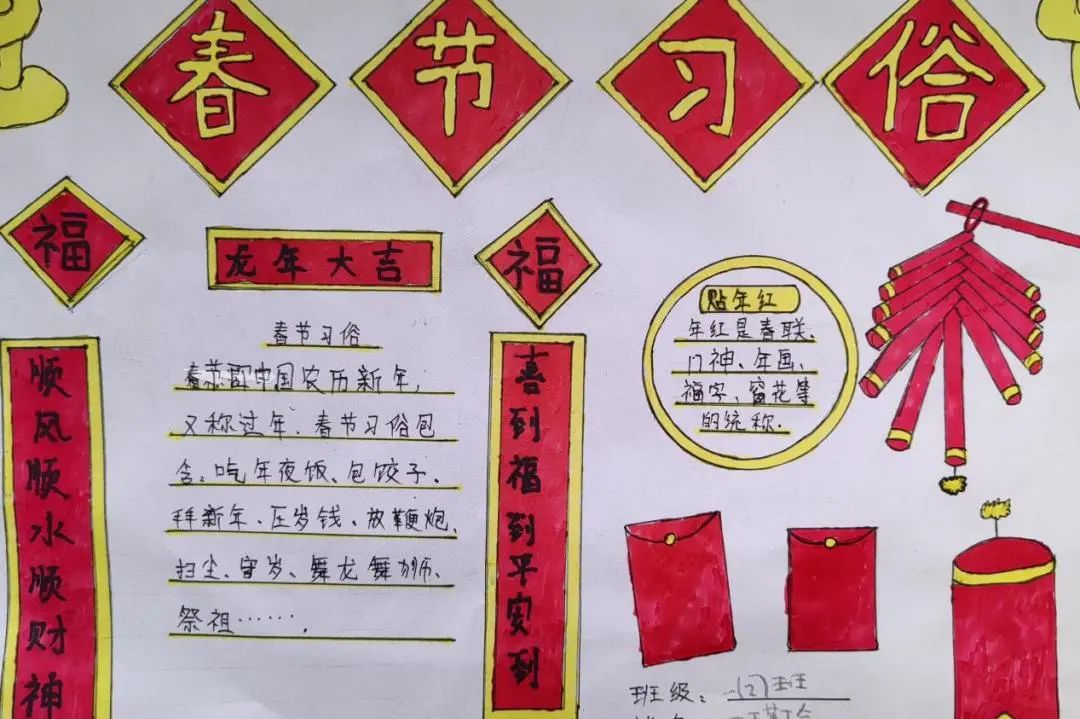 春节习俗
福
龙年大吉
福
顺风顺水顺财神
春节习俗
春节即中国农历新年,
又称过年、春节习俗包
含:吃年夜饭、包饺子、
拜新年、压岁钱、放鞭炮、
扫尘、守岁、舞龙舞狮、
祭祖…….
喜到福到平安到
贴年红
年红是春联、
门神、年画、
福字、窗花等
的统称.
班级:一(2)班